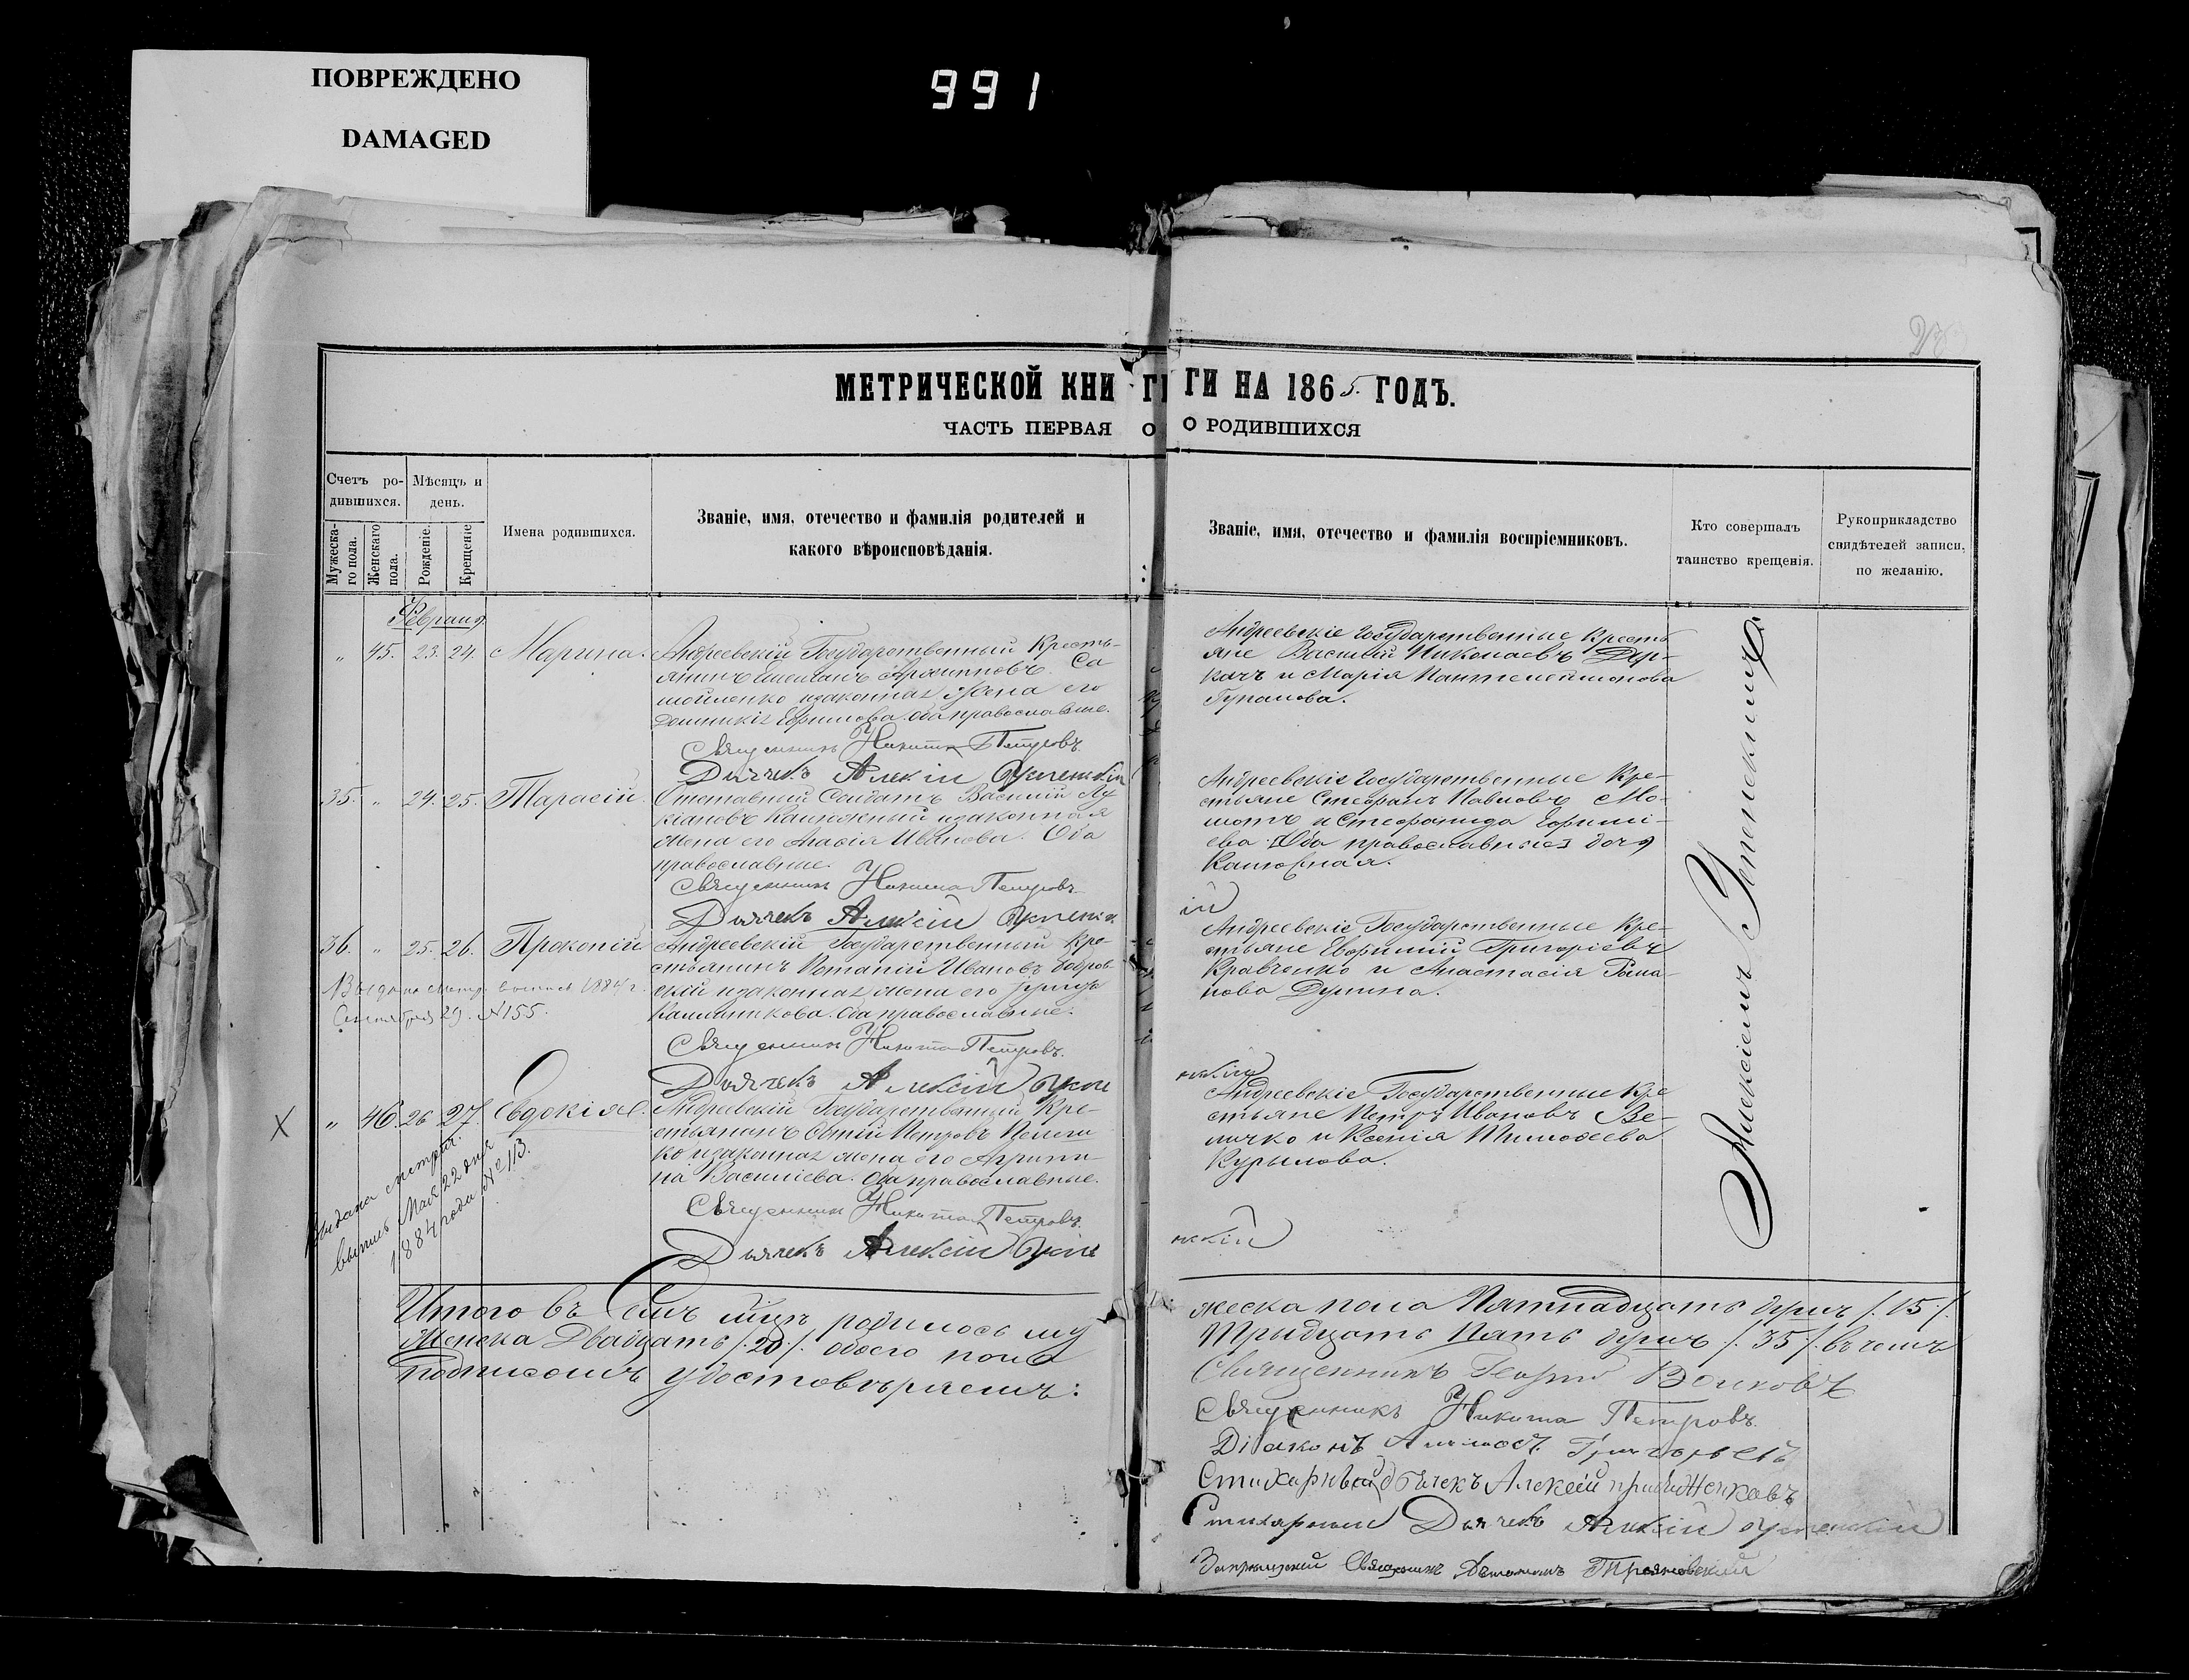 ПОВРЕЖДЕНО
DAMAGED
991
МЕТРИЧЕСКОЙ КНИ ГИ НА 1865. ГОДЪ.
ЧАСТЬ ПЕРВАЯ О РОДИВШИХСЯ
Счетъ ро-
дившихся.
Мужеска-
го пола.
Женскаго
пола.
Мѣсяцъ и
день.
Рожденіе.
Крещеніе
Имена родившихся.
Званіе, имя, отечество и фамилія родителей и
какого вѣроисповѣданія.
Званіе, имя, отечество и фамилія воспріемниковъ.
Кто совершалъ
таинство крещенія.
Рукоприкладство
свидѣтелей записи,
по желанію.
Февраля
" 45. 23. 24. Марина.
Андреевскій Государственный Кресть-
янинъ Архипповъ Са
мойленко изаконная Жена его
Ефимова. оба православные.
Священникъ Никита Петровъ
Дьячекъ Алексій Успенскій
Андреевскіе Государственные Кресть
яне Василій Николаевъ Дер-
качъ и Марія Пантелеймонова
Гупалова.
35. " 24. 25. Тарасій.
Отставный Солдатъ Василій Лу
кіановъ Калюжный изаконная
Жена его Анасія Иванова. Оба
православные.
Священникъ Никита Петровъ
Дьячекъ Алексій Успенск
ій
Андреевскіе Государственные Кре-
стьяне Стефанъ Павловъ Мо-
и Стефанида Ефимі-
ева Оба православные дочь
Калюжная.
36. " 25. 26. Прокопій
Андреевскій Государственный Кре-
стьянинъ Потапій Ивановъ Бобров-
скій изаконная жена его
Калашникова. Оба православные.
Священникъ Никита Петровъ.
Дьячекъ Алексій Успе
нскій
1884 г.
Сентября 29. №155.
Андреевскіе Государственные Кре-
стьяне Евфимій Григоріевъ
Кравченко и Анастасія Рома-
нова Дунина.
Х " 46. 26 27. Евдокія.
Андреевскій Государственный Кре-
стьянинъ Петровъ
ко изаконная жена его Агрипи-
на Василіева. Оба православные.
Священникъ Никита Петровъ.
Дьячекъ Алексій Успе
нскій
Выдана метрич.
выпись Мая 22 дня
1884 года №113.
Андреевскіе Государственные Кре
стьяне Петръ Ивановъ Ве-
личко и Ксенія Тимофеева
Курылова.
Алексіемъ Успенскимъ
Итого въ Семъ родилось му
жеска пола Пятнадцать душъ /.15/.
Женска Двадцать /.20/. обоего пола
Тридцать Пять душъ /.35/. въ чемъ
подписомъ удостовѣряемъ:
Священникъ Георгій Волковъ
Священникъ Никита Петровъ
Діаконъ Григорьевъ
Стихарный дьячекъ Алексій
Стихарный Дьячекъ Алексій Успенскій
Священникъ Трояновскій